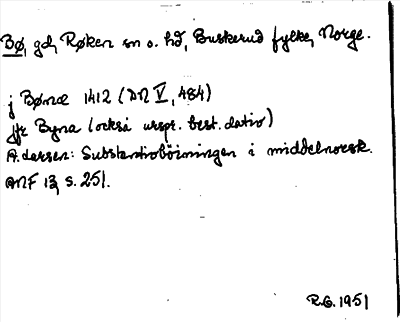 Bø, gd, Røken sn o. hd, Buskerud fylke, Norge.
j Bønæ 1412 (DN V, 484)
jfr Byna (också urspr. best. dativ)
A. Larsen: Substantivböiningen i middelnorsk.
ANF 13, s. 251.
R.G. 1951